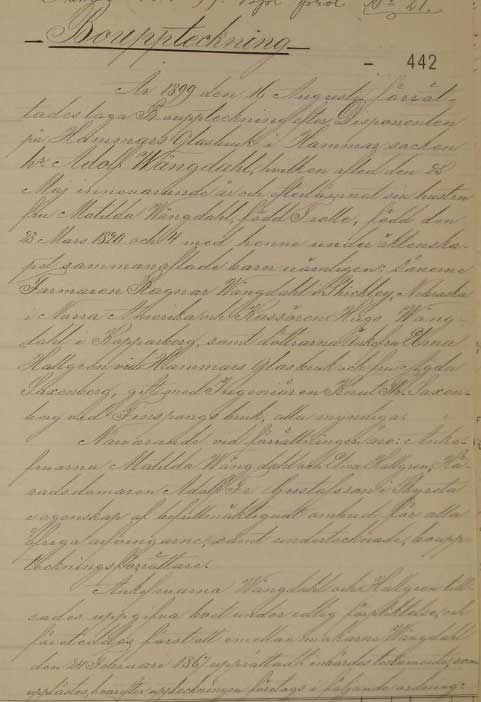 No 21.
Bouppteckning
- 442
År 1899 den 16 Augusti förrät-
tades laga Bouppteckning efter Disponenten
på Hammars Glasbruk i Hammar socken
hr Adolf Wångdahl, hvilken afled den 25
Maj innevarande år och efterlämnat sin hustru
fru Matilda Wångdahl, född Trolle, född den
23 Mars 1820 och 4 med henne under äktenska-
pet sammanaflade barn nämligen: Sönerne
Farmaren Ragnar Wångdahl i Shickley, Nebraska
i Norra Amerika och Kassören Hugo Wång-
dahl i Kopparberg, samt döttrarna Enkefru Elna
Hallgren vid Hammars Glasbruk och fru Agda
Saxenberg, gift med Ingeniören Knut Fr. Saxen-
berg vid Finspongs bruk, alla myndiga.
Närvarande vid förrättningen äro: Enke-
fruarna Matilda Wångdahl och Elna Hallgren, Hä-
radsdomaren Adolf Fr. Gustafsson i Skyrsta
i egenskap af befullmäktigadt ombud för alla
öfriga arfvingarne, samt undertecknade, boupp-
teckningsförrättare.
Enkefruarna Wångdahl och Hallgren till-
sades uppgifva boet under edlig förpliktelse, och
företeddes förstatt emellan makarne Wångdahl
den 24 Februari 1867 upprättadt inbördes testamente, som
upplästes, hvarefter uppteckningen företogs i följande ordning: